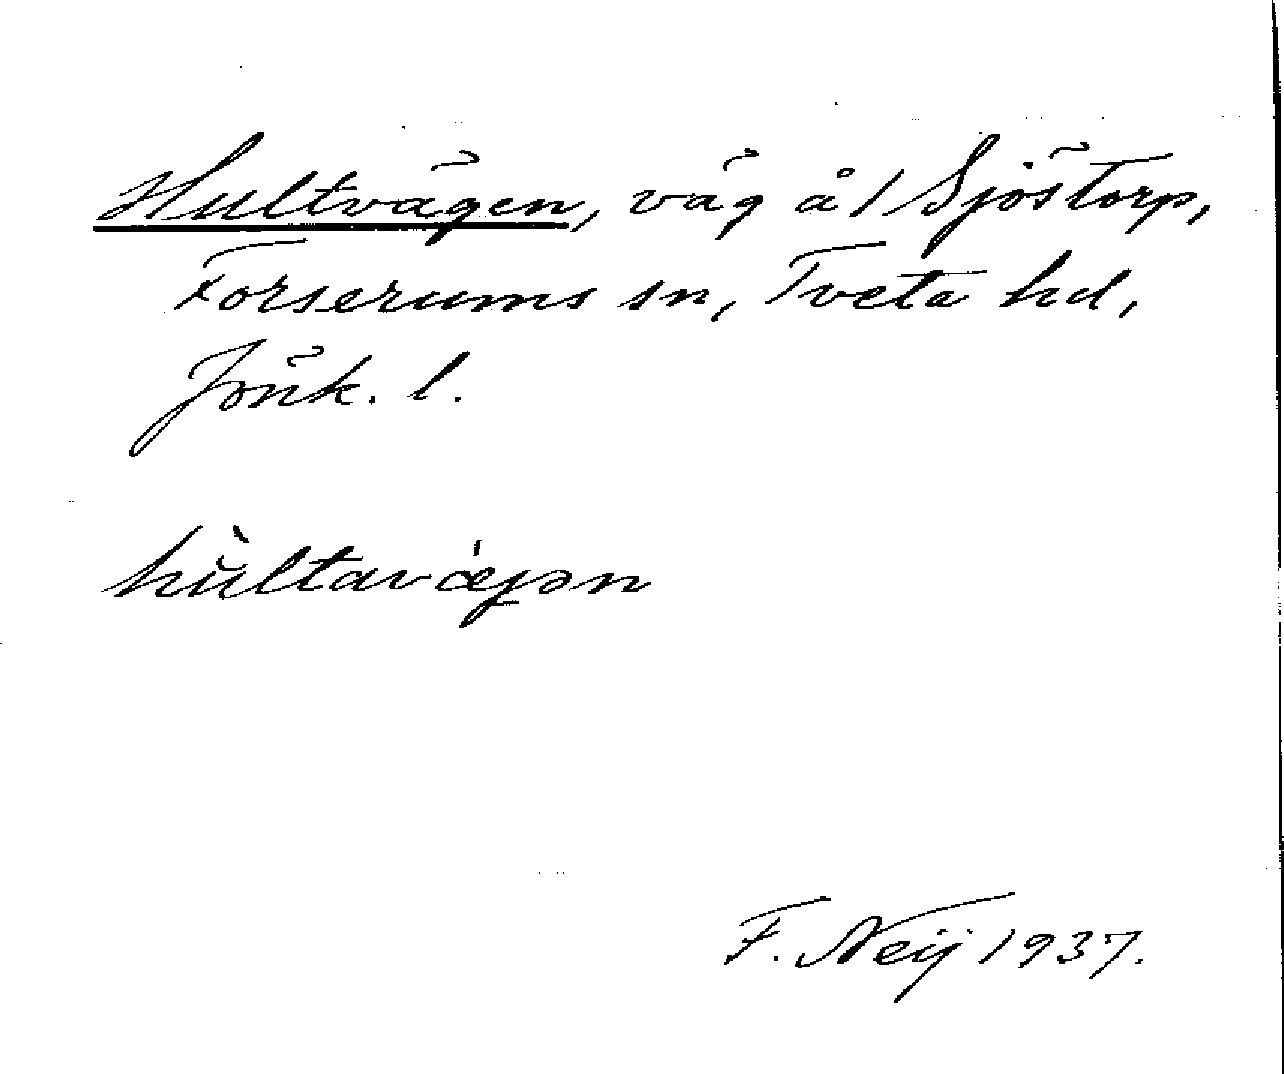 Hultvägen, väg å/ Sjöstorp,
Forserums sn, Tveta hd,
Jönk. l.
hùltavǽjən
F. Neij 1937.